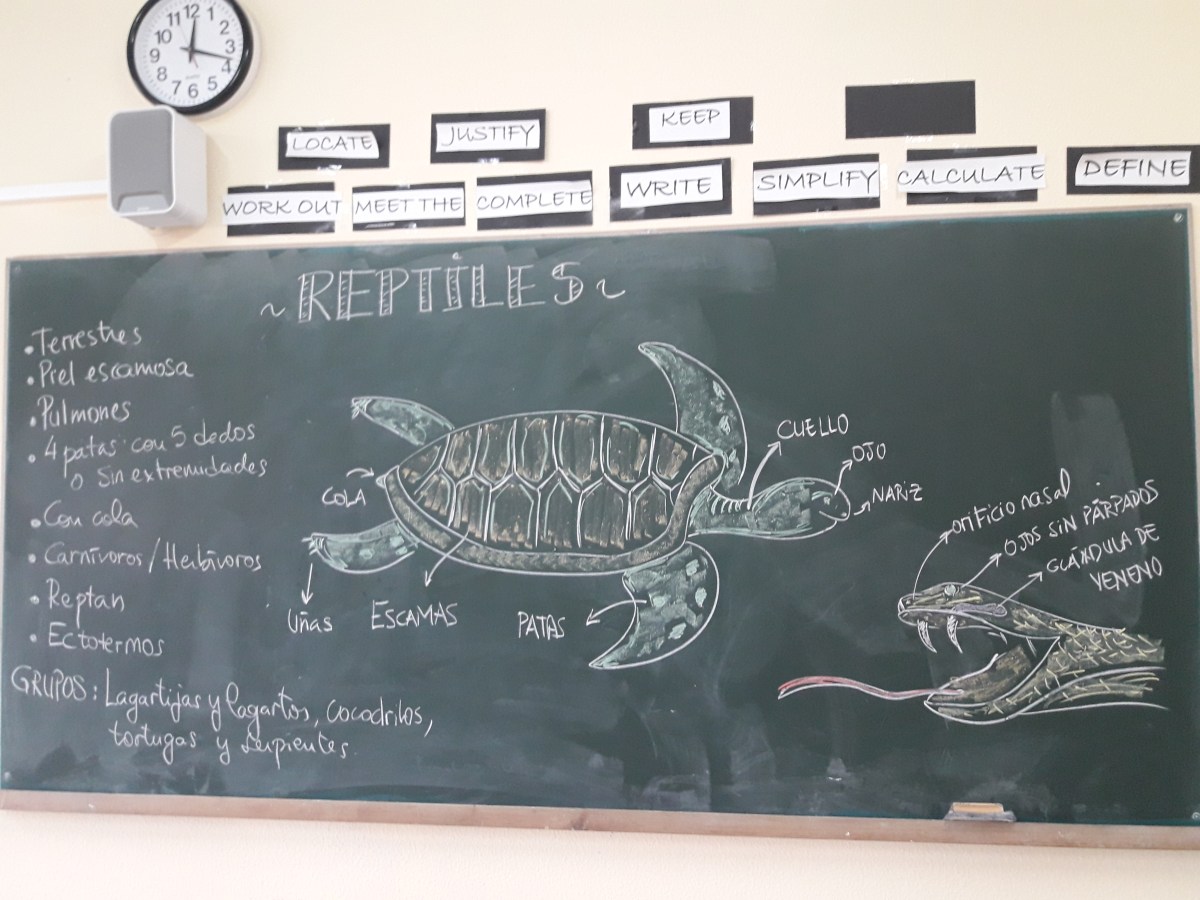 12 1 2 3 4 5 6 7 8 9 10 11
LOCATE
JUSTIFY
KEEP
WORK OUT
MEET THE
COMPLETE
WRITE
SIMPLIFY
CALCULATE
DEFINE
~REPTILES~
• Terrestres
• Piel escamosa
• Pulmones
• 4 patas con 5 dedos
o Sin extremidades
• Con cola
• Carnívoros/Herbívoros
• Reptan
• Ectotermos
GRUPOS: Lagartijas y lagartos, cocodrilos,
tortugas y serpientes.
COLA
Uñas
ESCAMAS
PATAS
CUELLO
OJO
NARIZ
orificio nasal
OJOS SIN PÁRPADOS
GLÁNDULA DE
VENENO